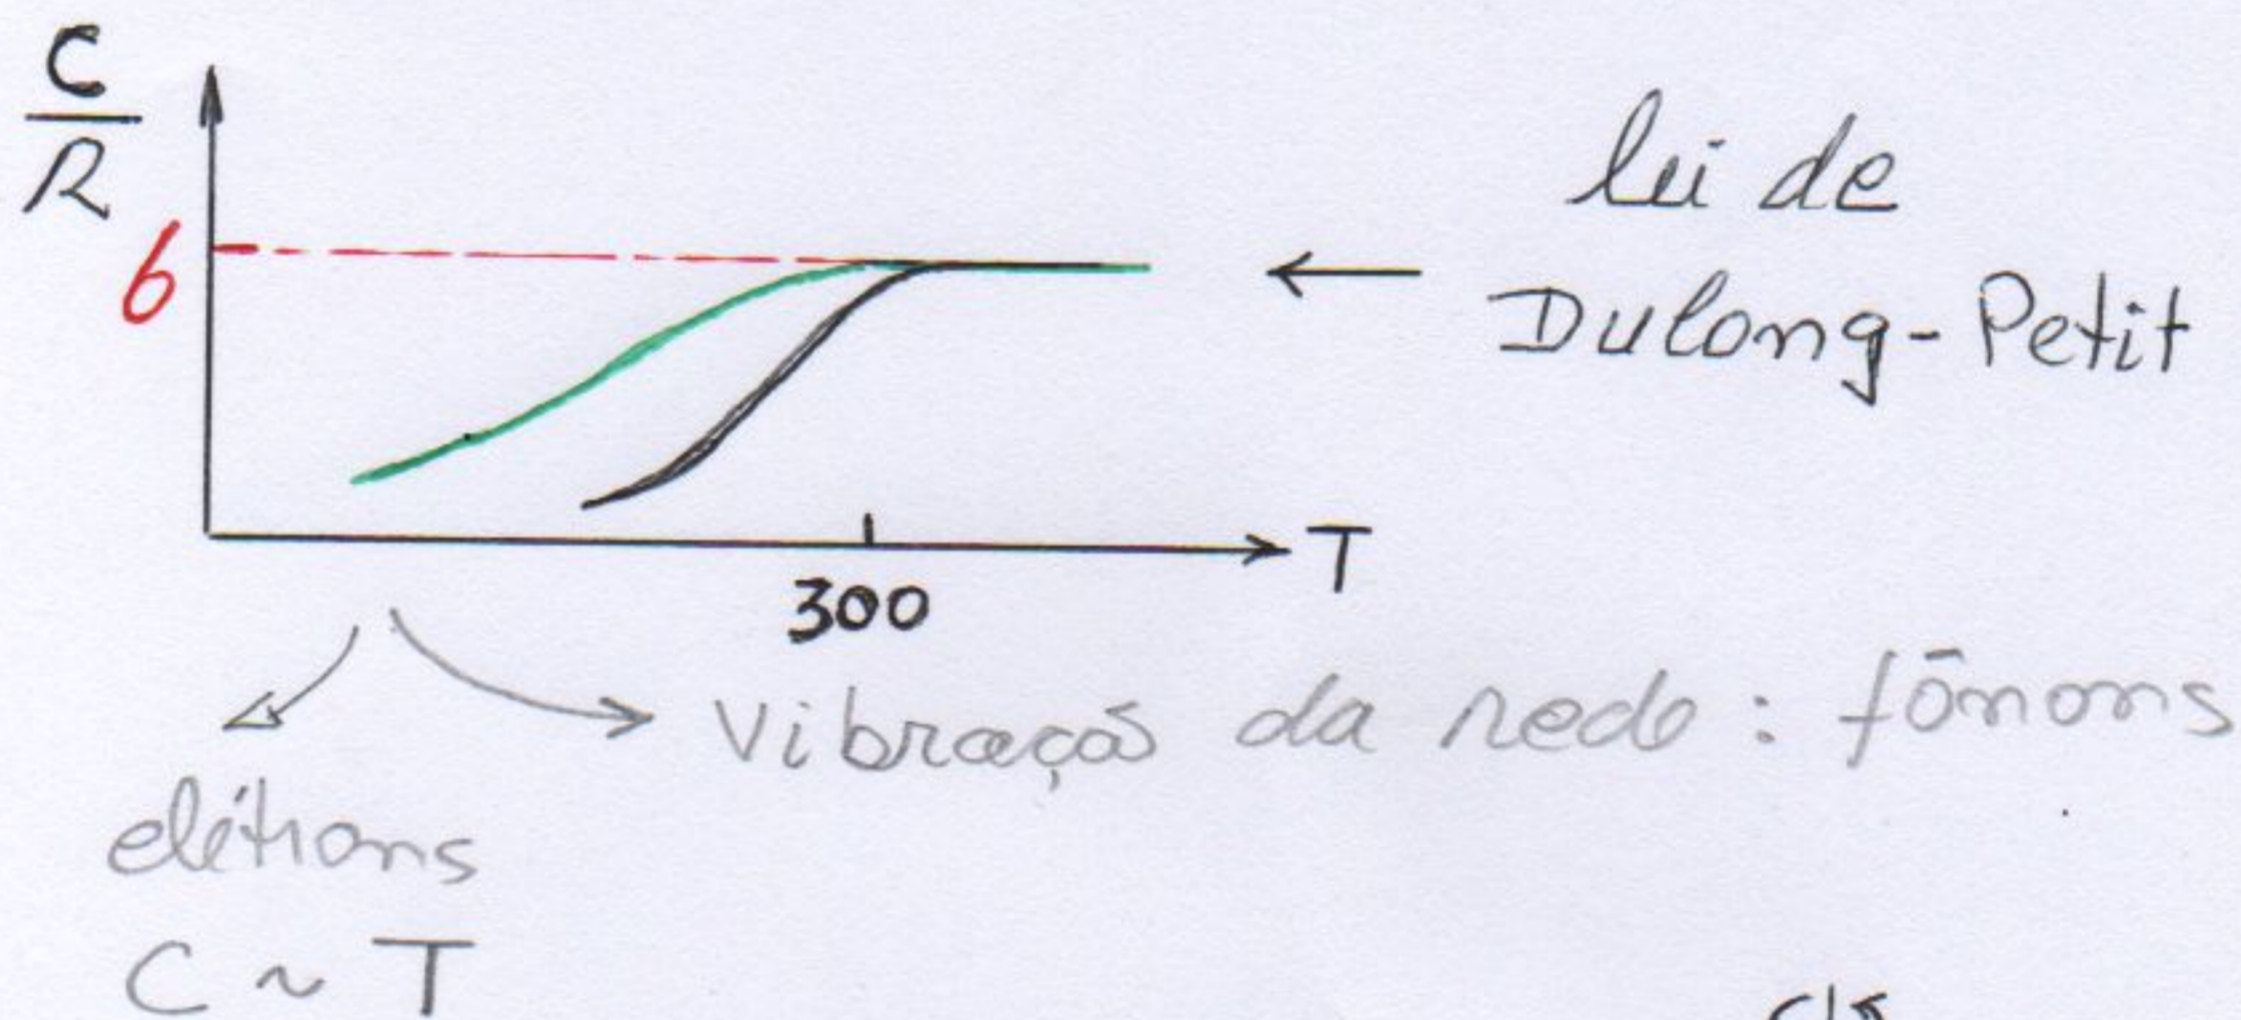 C
R
6
lei de
Dulong-Petit
T
300
Vibração da rede: fônons
elétrons
C ~ T